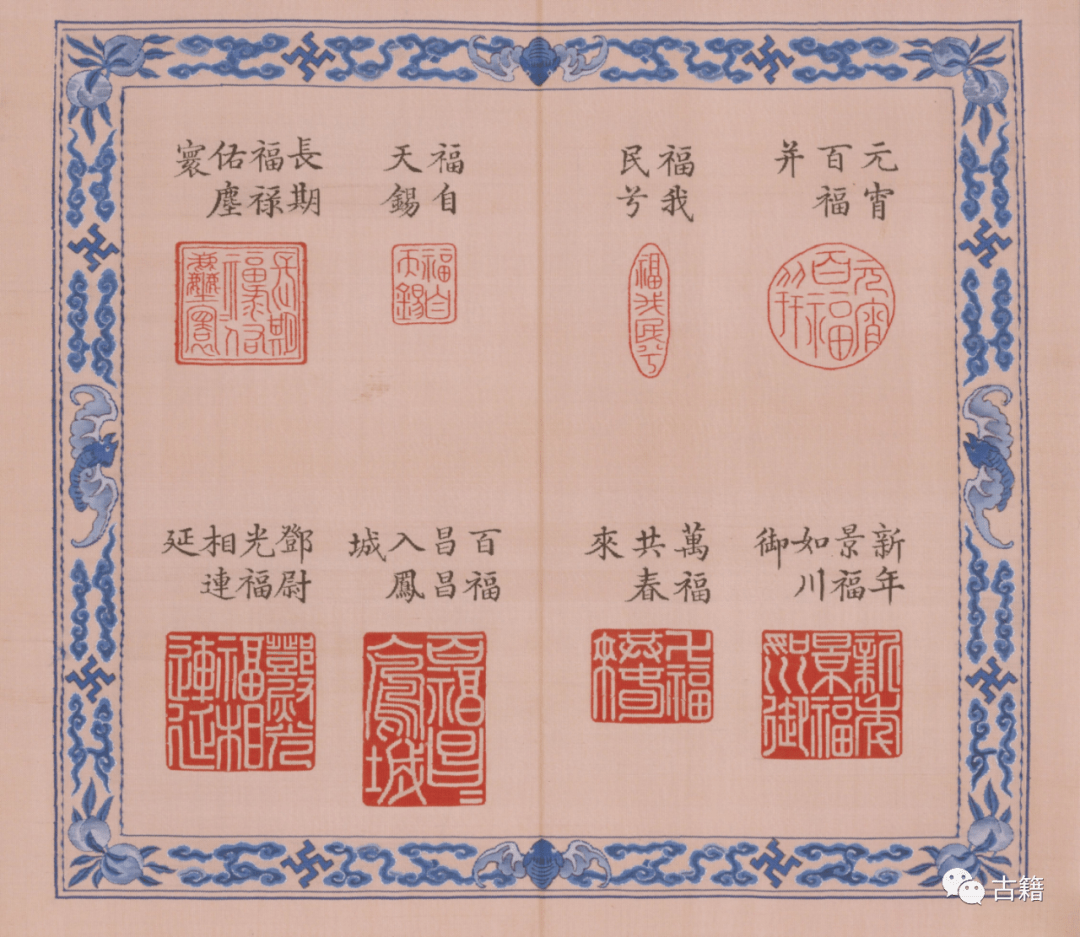 元宵
百福
并
福我
民兮
福自
天錫
長期
福祿
佑塵
寰
新年
景福
如川
御
萬福
共春
來
百福
昌昌
入鳳
城
鄧尉
光福
相連
延
古籍